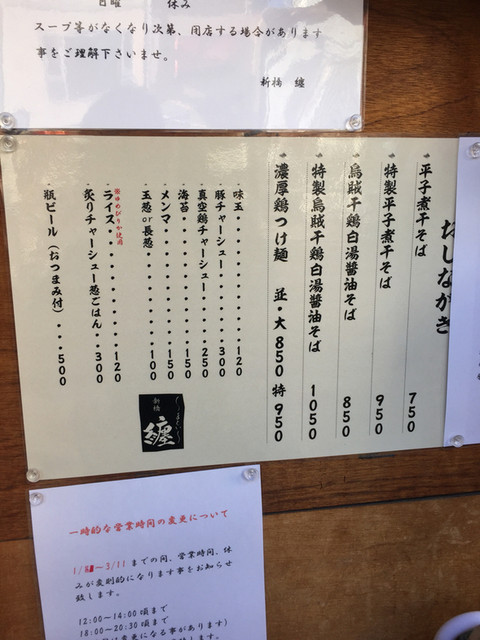 日曜　休み
スープ等がなくなり次第、閉店する場合があります
事をご理解下さいませ。
新橋　纏
おしながき
平子煮干そば　750
特製平子煮干そば　950
烏賊干鶏白湯醤油そば　850
特製烏賊干鶏白湯醤油そば　1050
濃厚鶏つけ麺　並・大850 特950
味玉・・・・・・・・・・120
豚チャーシュー・・・・300
真空鶏チャーシュー・・・250
海苔・・・・・・・・・・150
メンマ・・・・・・・・・150
玉葱or長葱・・・・・・100
※ゆめぴりか使用
ライス・・・・・・・・・120
炙りチャーシュー葱ごはん・・・300
瓶ビール（おつまみ付）・・・500
新橋
纏
一時的な営業時間の変更について
～3/11までの間、営業時間、休
みが変則的になります事をお知らせ
致します。
12:00～14:00頃まで
18:00～20:30頃まで
変更になる事があります）